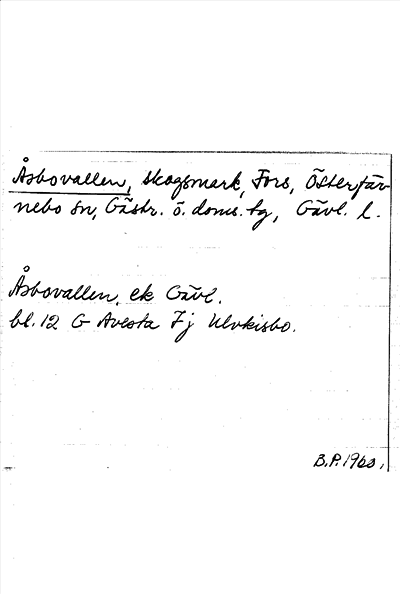 Åsbovallen, skogsmark, Fors, Österfär
nebo sn, Gästr. ö. doms. tg, Gävl. l.
Åsbovallen, ek Gävl.
bl. 12 G Avesta 7j Ulvkisbo.
B.P. 1960.